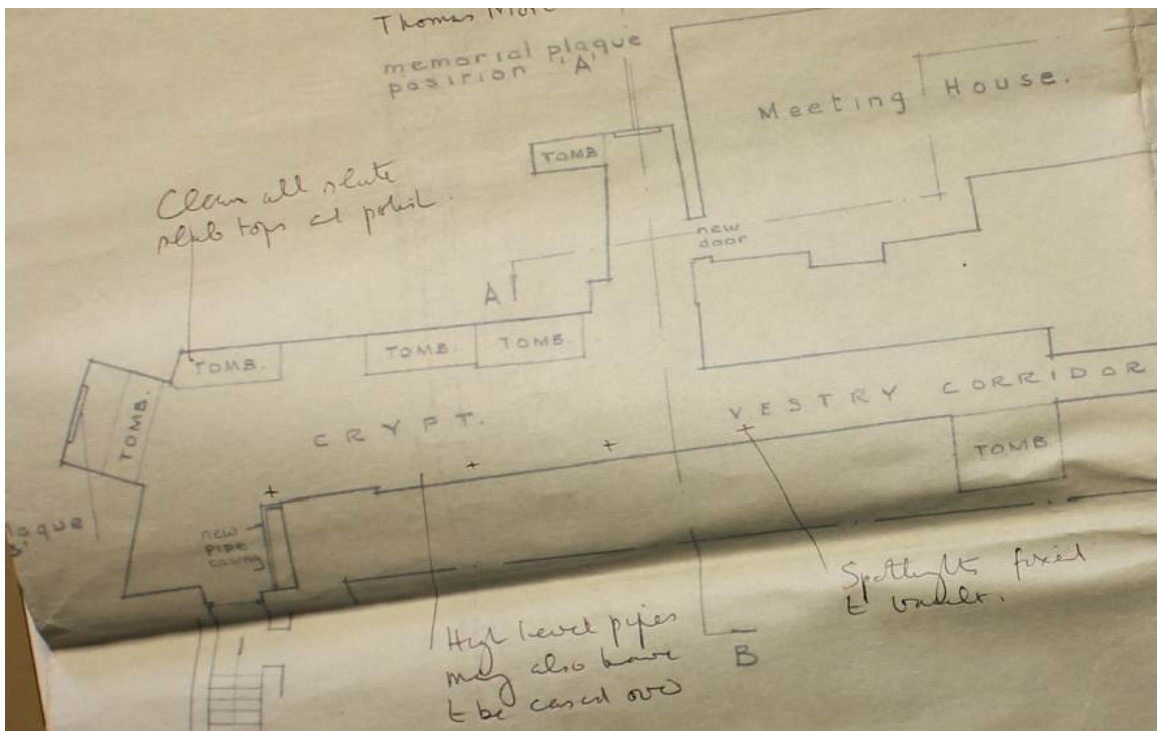 Thomas
memorial plaque
posirion 'A'
Meeting House.
TOMB
Clean all slate
slab tops
new
door
A
TOMB.
TOMB.
TOMB.
TOMB.
CRYPT.
VESTRY CORRIDOR
TOMB
plaque
new
pipe
casing
Spotlights fixed
t vault.
High level pipes
may also have
t be cased over
B